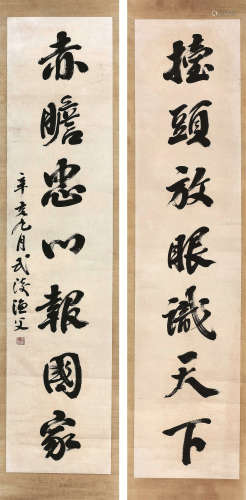 擡頭放眼識天下
赤瞻忠心報國家
辛亥九月武漢漁父